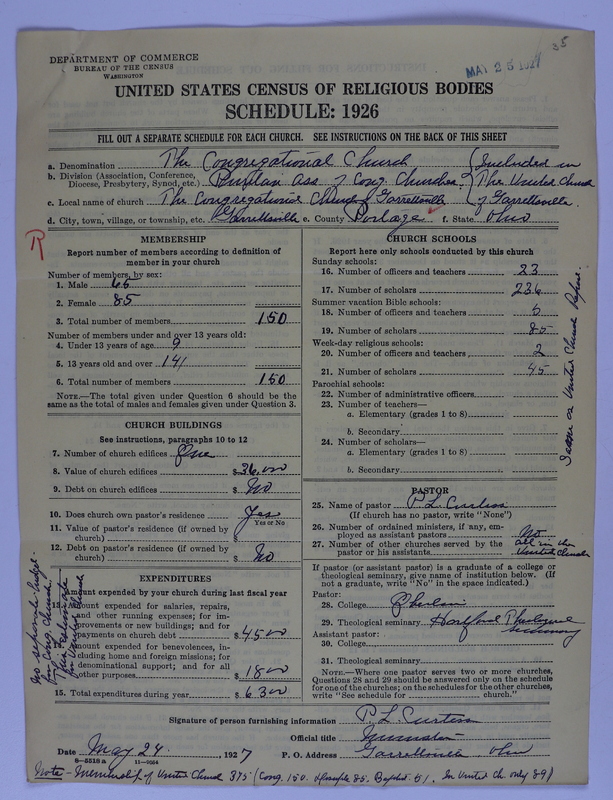 35
DEPARTMENT OF COMMERCE
BUREAU OF THE CENSUS
WASHINGTON
MAY 25 1927
UNITED STATES CENSUS OF RELIGIOUS BODIES
SCHEDULE: 1926
FILL OUT A SEPARATE SCHEDULE FOR EACH CHURCH. SEE INSTRUCTIONS ON THE BACK OF THIS SHEET
a. Denomination The Congregational Church (Included in
b. Division (Association, Conference, Diocese, Presbytery, Synod, etc.) Puritan Ass of Cong. Churches. The United Church
c. Local name of church The Congregational Church of Garrettsville of Garrettsville.
d. City, town, village, or township, etc. Garrettsville e. County Portage f. State Ohio
R
MEMBERSHIP
Report number of members according to definition of
member in your church
Number of members, by sex:
1. Male 65
2. Female 85
3. Total number of members 150
Number of members under and over 13 years old:
4. Under 13 years of age 9
5. 13 years old and over 141
6. Total number of members 150
NOTE.—The total given under Question 6 should be
same as the total of males and females given under Question 3.
CHURCH BUILDINGS
See instructions, paragraphs 10 to 12
7. Number of church edifices One
8. Value of church edifices $36,000
9. Debt on church edifices $ No
10. Does church own pastor's residence Yes
Yes or No
11. Value of pastor's residence (if owned by
church) $
12. Debt on pastor's residence (if owned by
church) $ No
EXPENDITURES
Amount expended by your church during last fiscal year
13. Amount expended for salaries, repairs,
and other running expenses; for im-
provements or new buildings; and for
payments on church debt $4500
14. Amount expended for benevolences, in-
cluding home and foreign missions; for
denominational support; and for all
other purposes $1800
15. Total expenditures during year $6300
No separate budget
for Cong. church.
This Estimate
for United Church
CHURCH SCHOOLS
Report here only schools conducted by this church
Sunday schools:
16. Number of officers and teachers 23
17. Number of scholars 236
Summer vacation Bible schools:
18. Number of officers and teachers 5
19. Number of scholars 85
Week-day religious schools:
20. Number of officers and teachers 2
21. Number of scholars 45
Parochial schools:
22. Number of administrative officers
23. Number of teachers—
a. Elementary (grades 1 to 8)
b. Secondary
24. Number of scholars—
a. Elementary (grades 1 to 8)
b. Secondary
United Church
PASTOR
25. Name of pastor P. L. Curtiss
(If church has no pastor, write "None")
26. Number of ordained ministers, if any, em-
ployed as assistant pastors No
27. Number of other churches served by the
pastor or his assistants all in the United Church
If pastor (or assistant pastor) is a graduate of a college or
theological seminary, give name of institution below. (If
not a graduate, write "No" in the space indicated.)
Pastor:
28. College Oberlin
29. Theological seminary Hartford Theological Seminary
Assistant pastor:
30. College
31. Theological seminary
NOTE.—Where one pastor serves two or more churches,
Questions 28 and 29 should be answered only on the schedule
for one of the churches; on the schedules for the other churches,
write "See schedule for church."
Signature of person furnishing information P. L. Curtiss
Official title Minister
Date May 24, 1927 P. O. Address Garrettsville Ohio
8—5518 a 11—9054
Note - Membership of United Church 375 (Cong. 150. Disciple 85. Baptist 51. In United Ch. only 89)